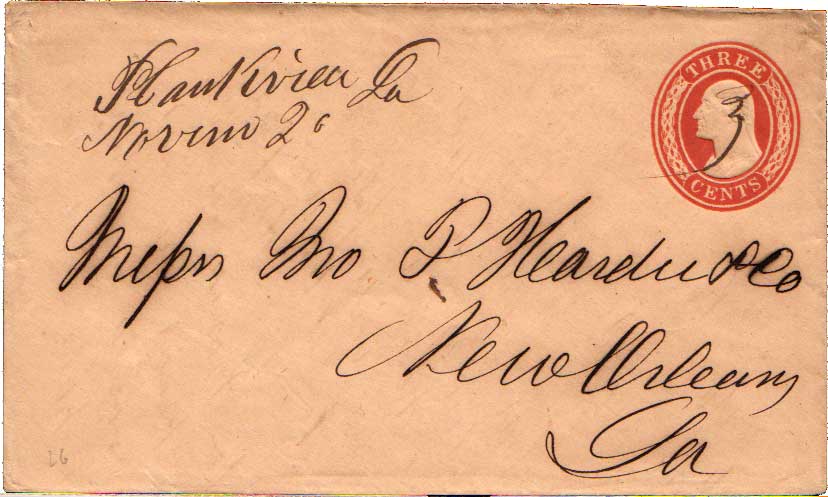 Plankview La
Novem 2
THREE
3
CENTS
Messrs Jno P Hardie & Co
New Orleans
La
26